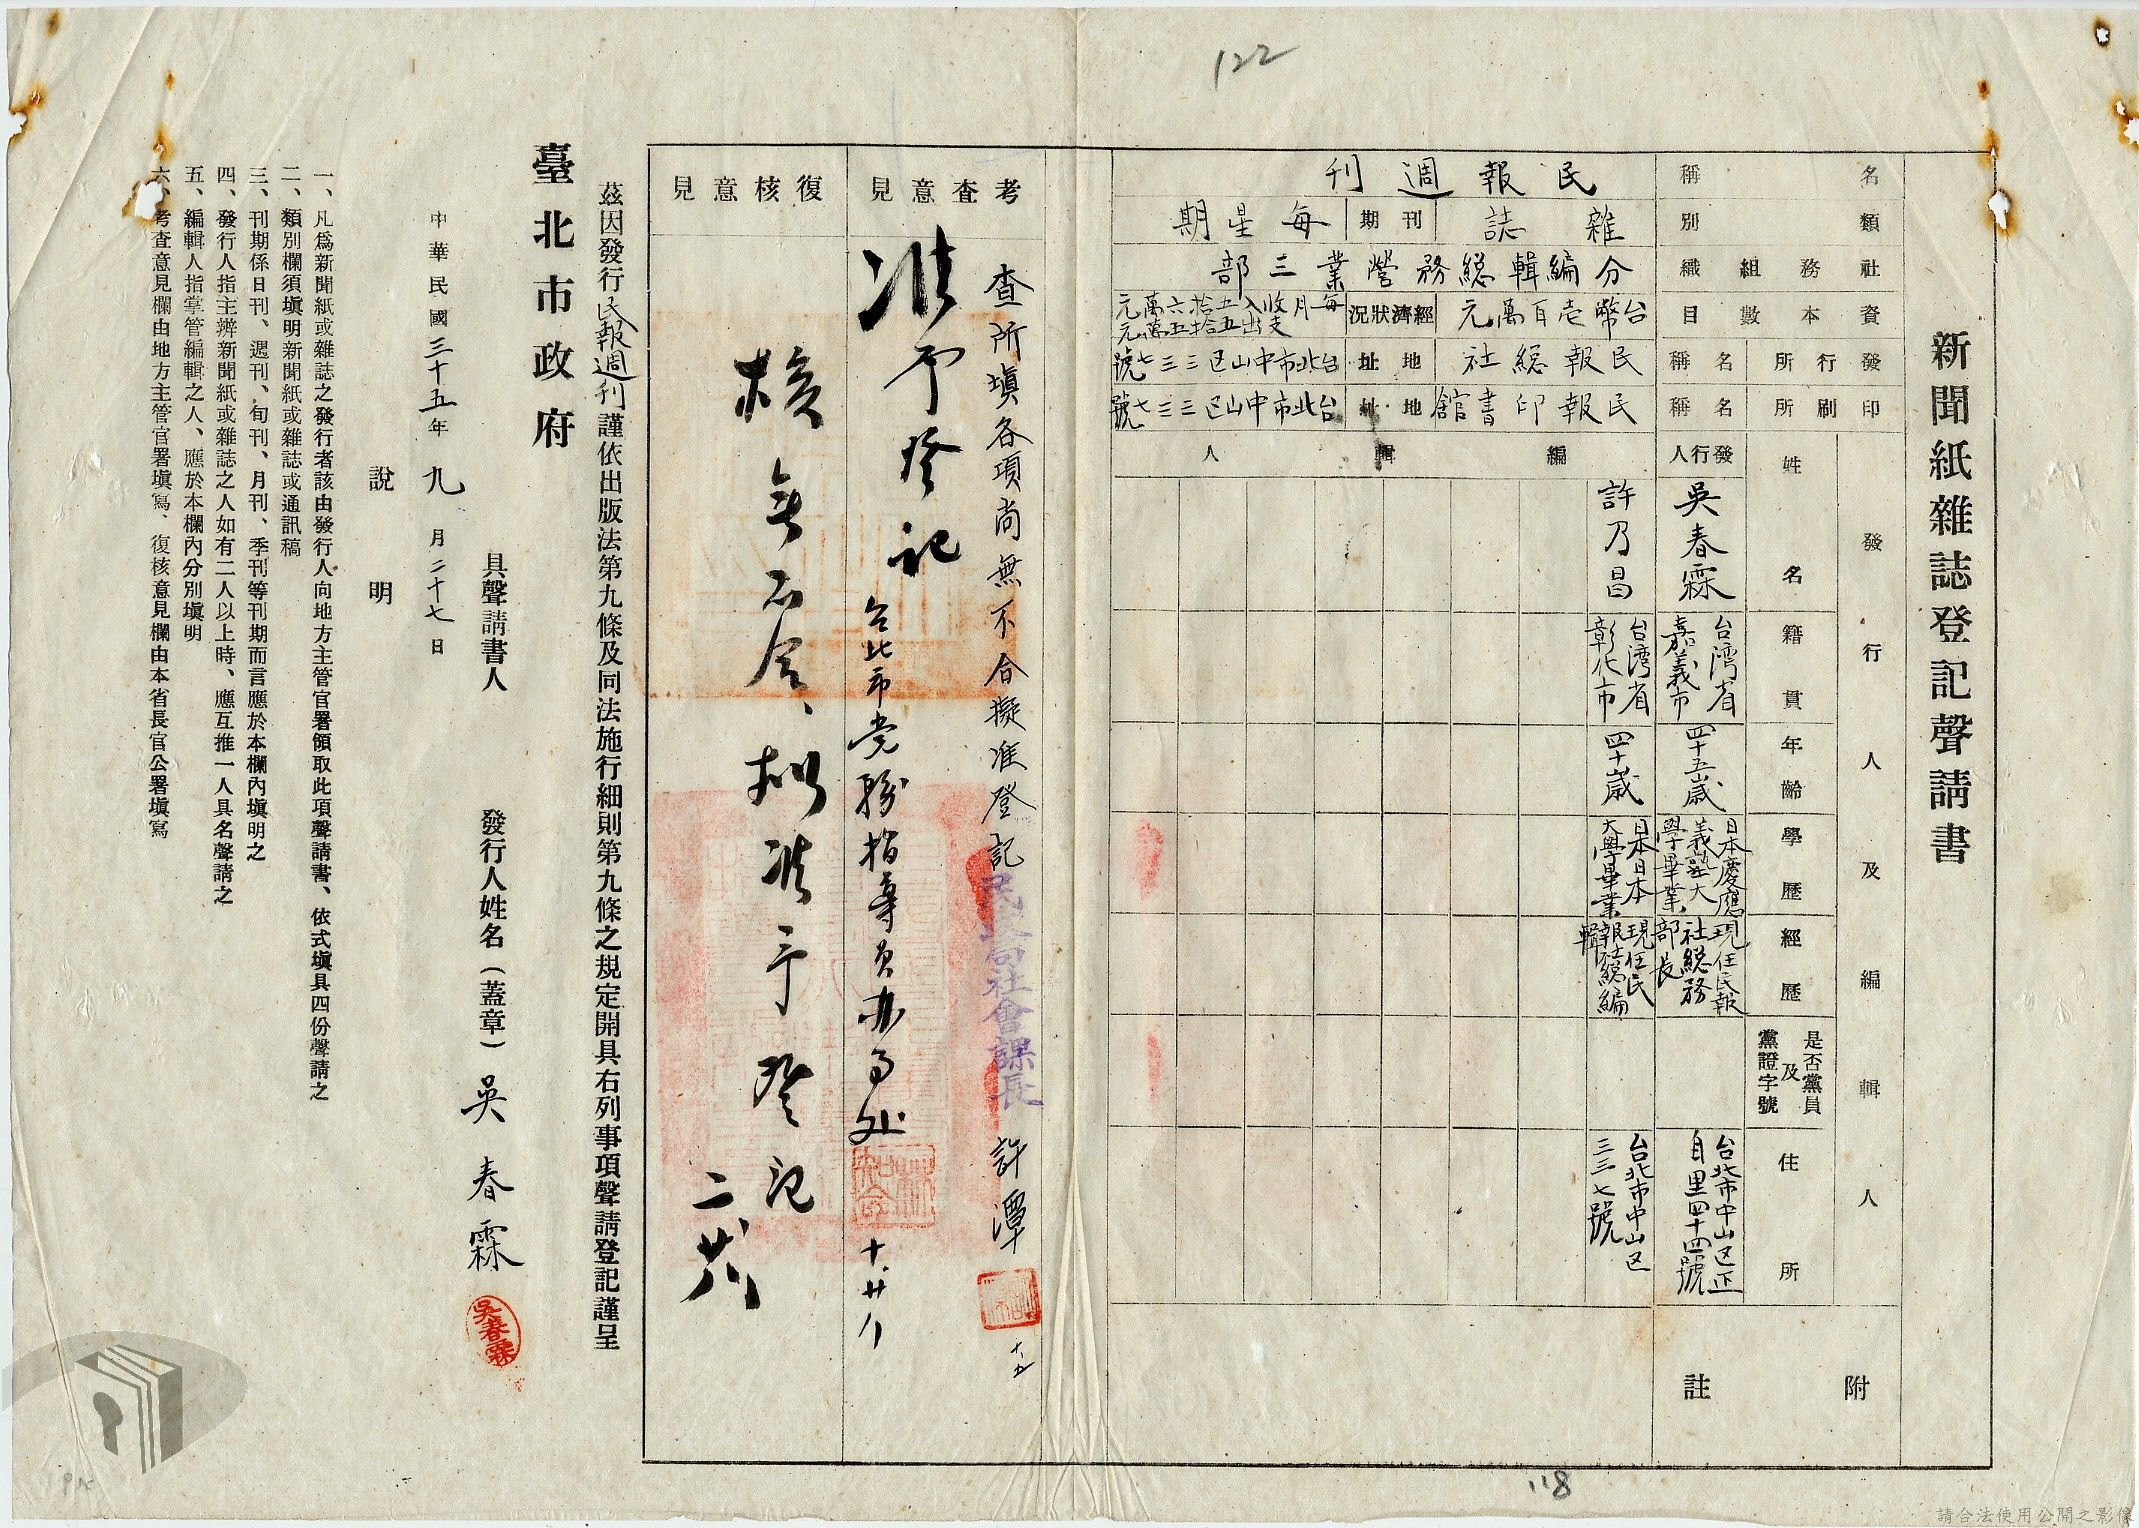 122
新聞紙雜誌登記聲請書
名稱 民報週刊
類別 雜誌 刊期 每星期
社務組織 分編輯総務營業三部
資本數目 台幣壱百萬元 經濟狀況 每月收入五拾六萬元 支出五拾五萬元
發行所名稱 民報総社 地址 台北市中山区三三七號
印刷所名稱 民報印書館 地址 台北市中山区三三七號
發行人及編輯人
姓名 籍貫 年齡 學歷 經歷 是否黨員及黨證字號 住所
發行人 吳春霖 台湾省嘉義市 四十五歲 日本慶應義塾大學畢業 現任民報社総務部長 台北市中山区正自里四十四號
編輯人 許乃昌 台湾省彰化市 四十歲 日本日本大學畢業 現任民報社総編輯 台北市中山区三三七號
附註
考查意見
查所填各項尚無不合擬准登記 民政局社會課長 許潭
十五
准予登記 台北市党務指導員办事处
復核意見
核無不合、拟准予登記
茲因發行民報週刊謹依出版法第九條及同法施行細則第九條之規定開具右列事項聲請登記謹呈
臺北市政府
具聲請書人 發行人姓名(蓋章)吳春霖
吳春霖
中華民國三十五年九月二十七日
說明
一、凡爲新聞紙或雜誌之發行者該由發行人向地方主管官署領取此項聲請書、依式塡具四份聲請之
二、類別欄須塡明新聞紙或雜誌或通訊稿
三、刊期係日刊、週刊、旬刊、月刊、季刊等刊期而言應於本欄內塡明之
四、發行人指主辦新聞紙或雜誌之人如有二人以上時、應互推一人具名聲請之
五、編輯人指掌管編輯之人、應於本欄內分別塡明
六、考查意見欄由地方主管官署塡寫、復核意見欄由本省長官公署塡寫
118
請合法使用公開之影像